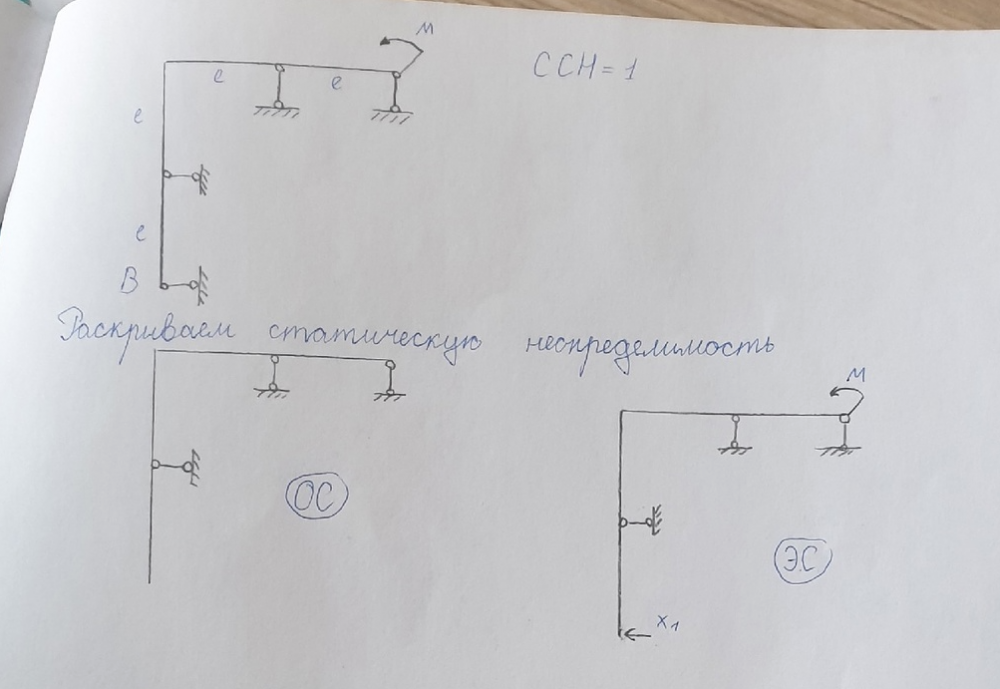 M
ССН=1
ℓ ℓ
ℓ
ℓ
В
Раскрываем статическую неопределимость
M
ОС
ЭС
X₁